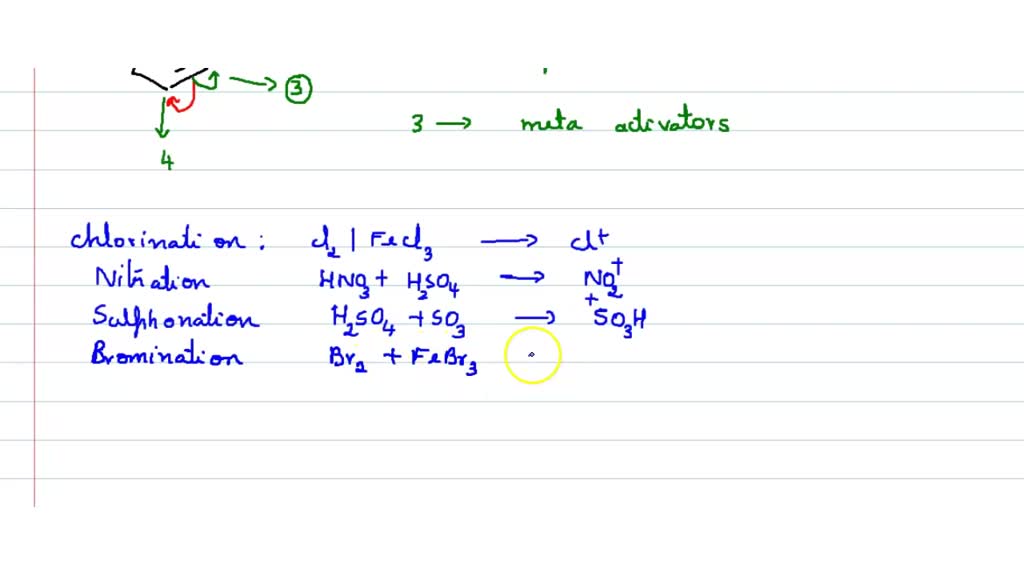 3
3 → meta activators
4
Chlorination : Cl2 | FeCl3 → Cl+
Nitration HNO3 + H2SO4 → NO2+
Sulphonation H2SO4 + SO3 → +SO3H
Bromination Br2 + FeBr3